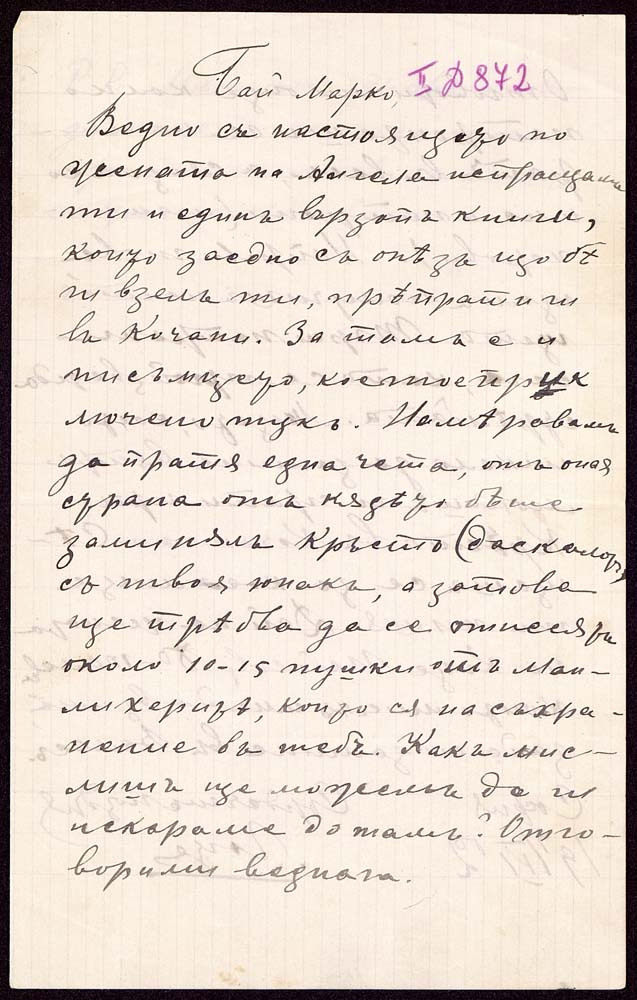 Бай Марко, II Д 872
Ведно съ настоящето по
чесната на Ангела испращамъ
ти и единъ вързопъ книги,
които заедно съ онѣзъ що бѣ
ги взелъ ти, прѣпрати ги
въ Кочани. За тамъ е и
писъмцето, което е прик
лючено тукъ. Намѣровамъ
да пратя една чета, отъ оная
страна отъ кядѣто бѣше
заминялъ Кръсто (даскалотъ)
съ твоя юнакъ, а затова
ще трѣбва да се отнесятъ
около 10-15 пушки отъ Ман-
лихеритѣ, които ся на съхра-
нение въ тебъ. Какъ мис-
лишъ ще можемъ да ги
искараме до тамъ? Отго-
вори ми веднага.